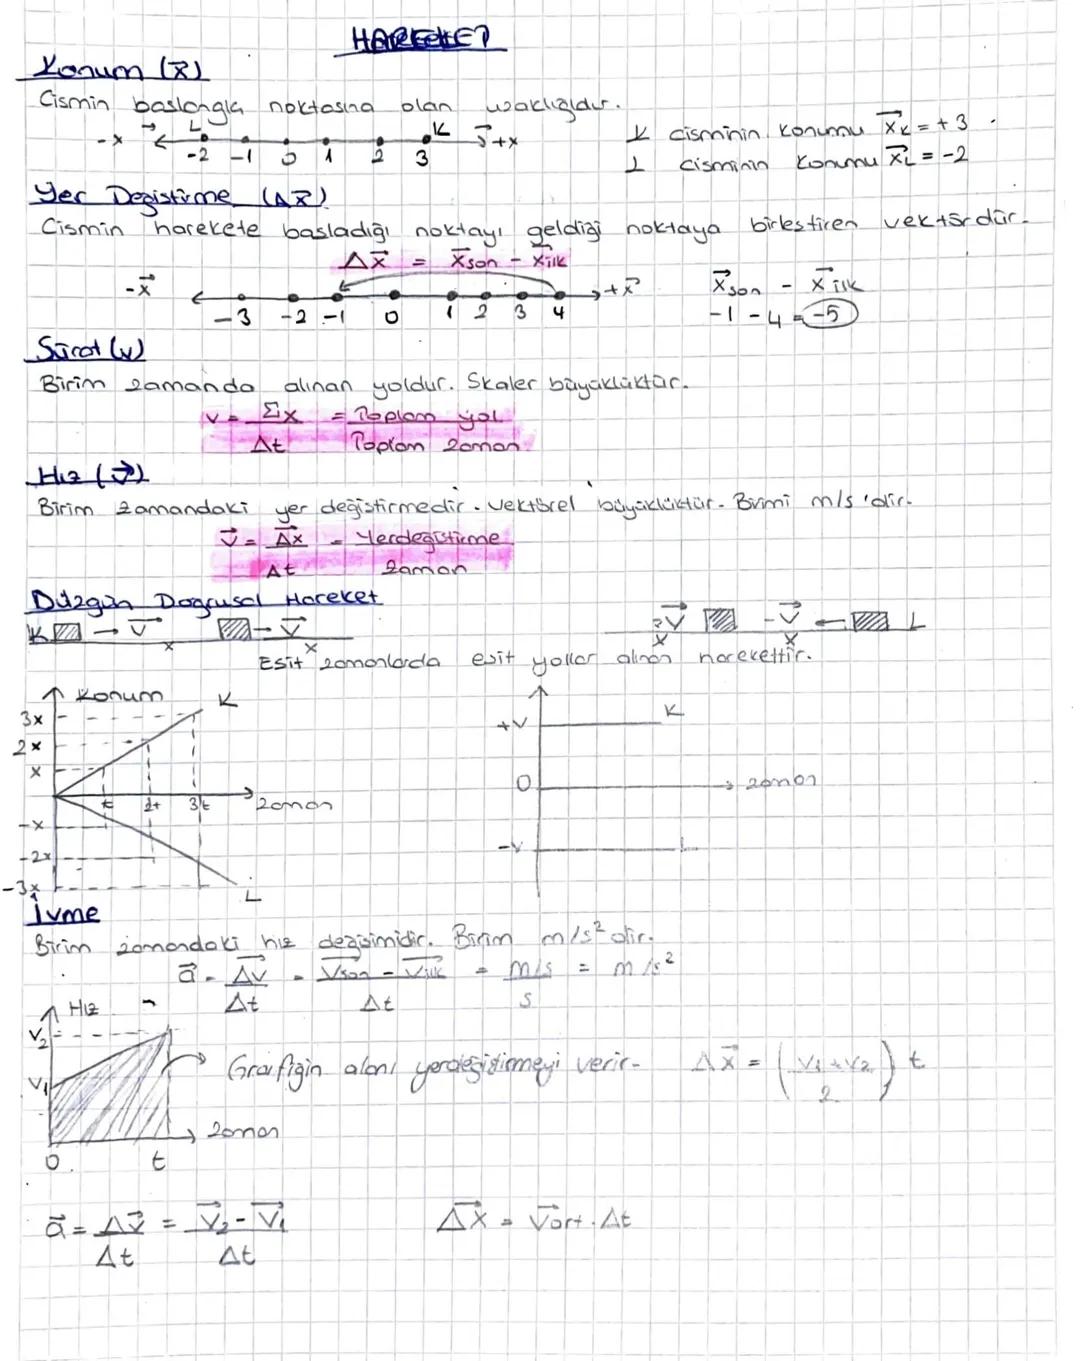 HAREKET
Konum (x⃗)
Cismin başlangıç noktasına olan uzaklığıdır.
-x⃗ L K x⃗ +x
-2 -1 0 1 2 3
K cisminin konumu x⃗K = +3
L cisminin konumu x⃗L = -2
Yer Değiştirme (Δx⃗)
Cismin harekete başladığı noktayı geldiği noktaya birleştiren vektördür.
Δx⃗ = x⃗son - x⃗ilk
-x⃗ +x⃗
-3 -2 -1 0 1 2 3 4
x⃗son - x⃗ilk
-1 - 4 = -5
Sürat (v)
Birim zamanda alınan yoldur. Skaler büyüklüktür.
v = Σx = Toplam yol
Δt Toplam zaman
Hız (v⃗)
Birim zamandaki yer değiştirmedir. Vektörel büyüklüktür. Birimi m/s 'dir.
v⃗ = Δx⃗ = Yerdeğiştirme
Δt zaman
Düzgün Doğrusal Hareket
K → v⃗ → v⃗
x x
-v⃗ ← L
x x
Eşit zamanlarda eşit yollar alınan harekettir.
Konum K
3x
2x
x
t 2t 3t zaman
-x
-2x
-3x
L
+v K
0 zaman
-v L
İvme
Birim zamandaki hız değişimidir. Birim m/s² dir.
a⃗ = Δv⃗ = v⃗son - v⃗ilk = m/s = m/s²
Δt Δt s
Hız
V₂
V₁
Grafiğin alanı yerdeğiştirmeyi verir. Δx⃗ = (V₁ + V₂ / 2) t
zaman
0 t
a⃗ = Δv⃗ = V⃗₂ - V⃗₁
Δt Δt
Δx⃗ = v⃗ort . Δt